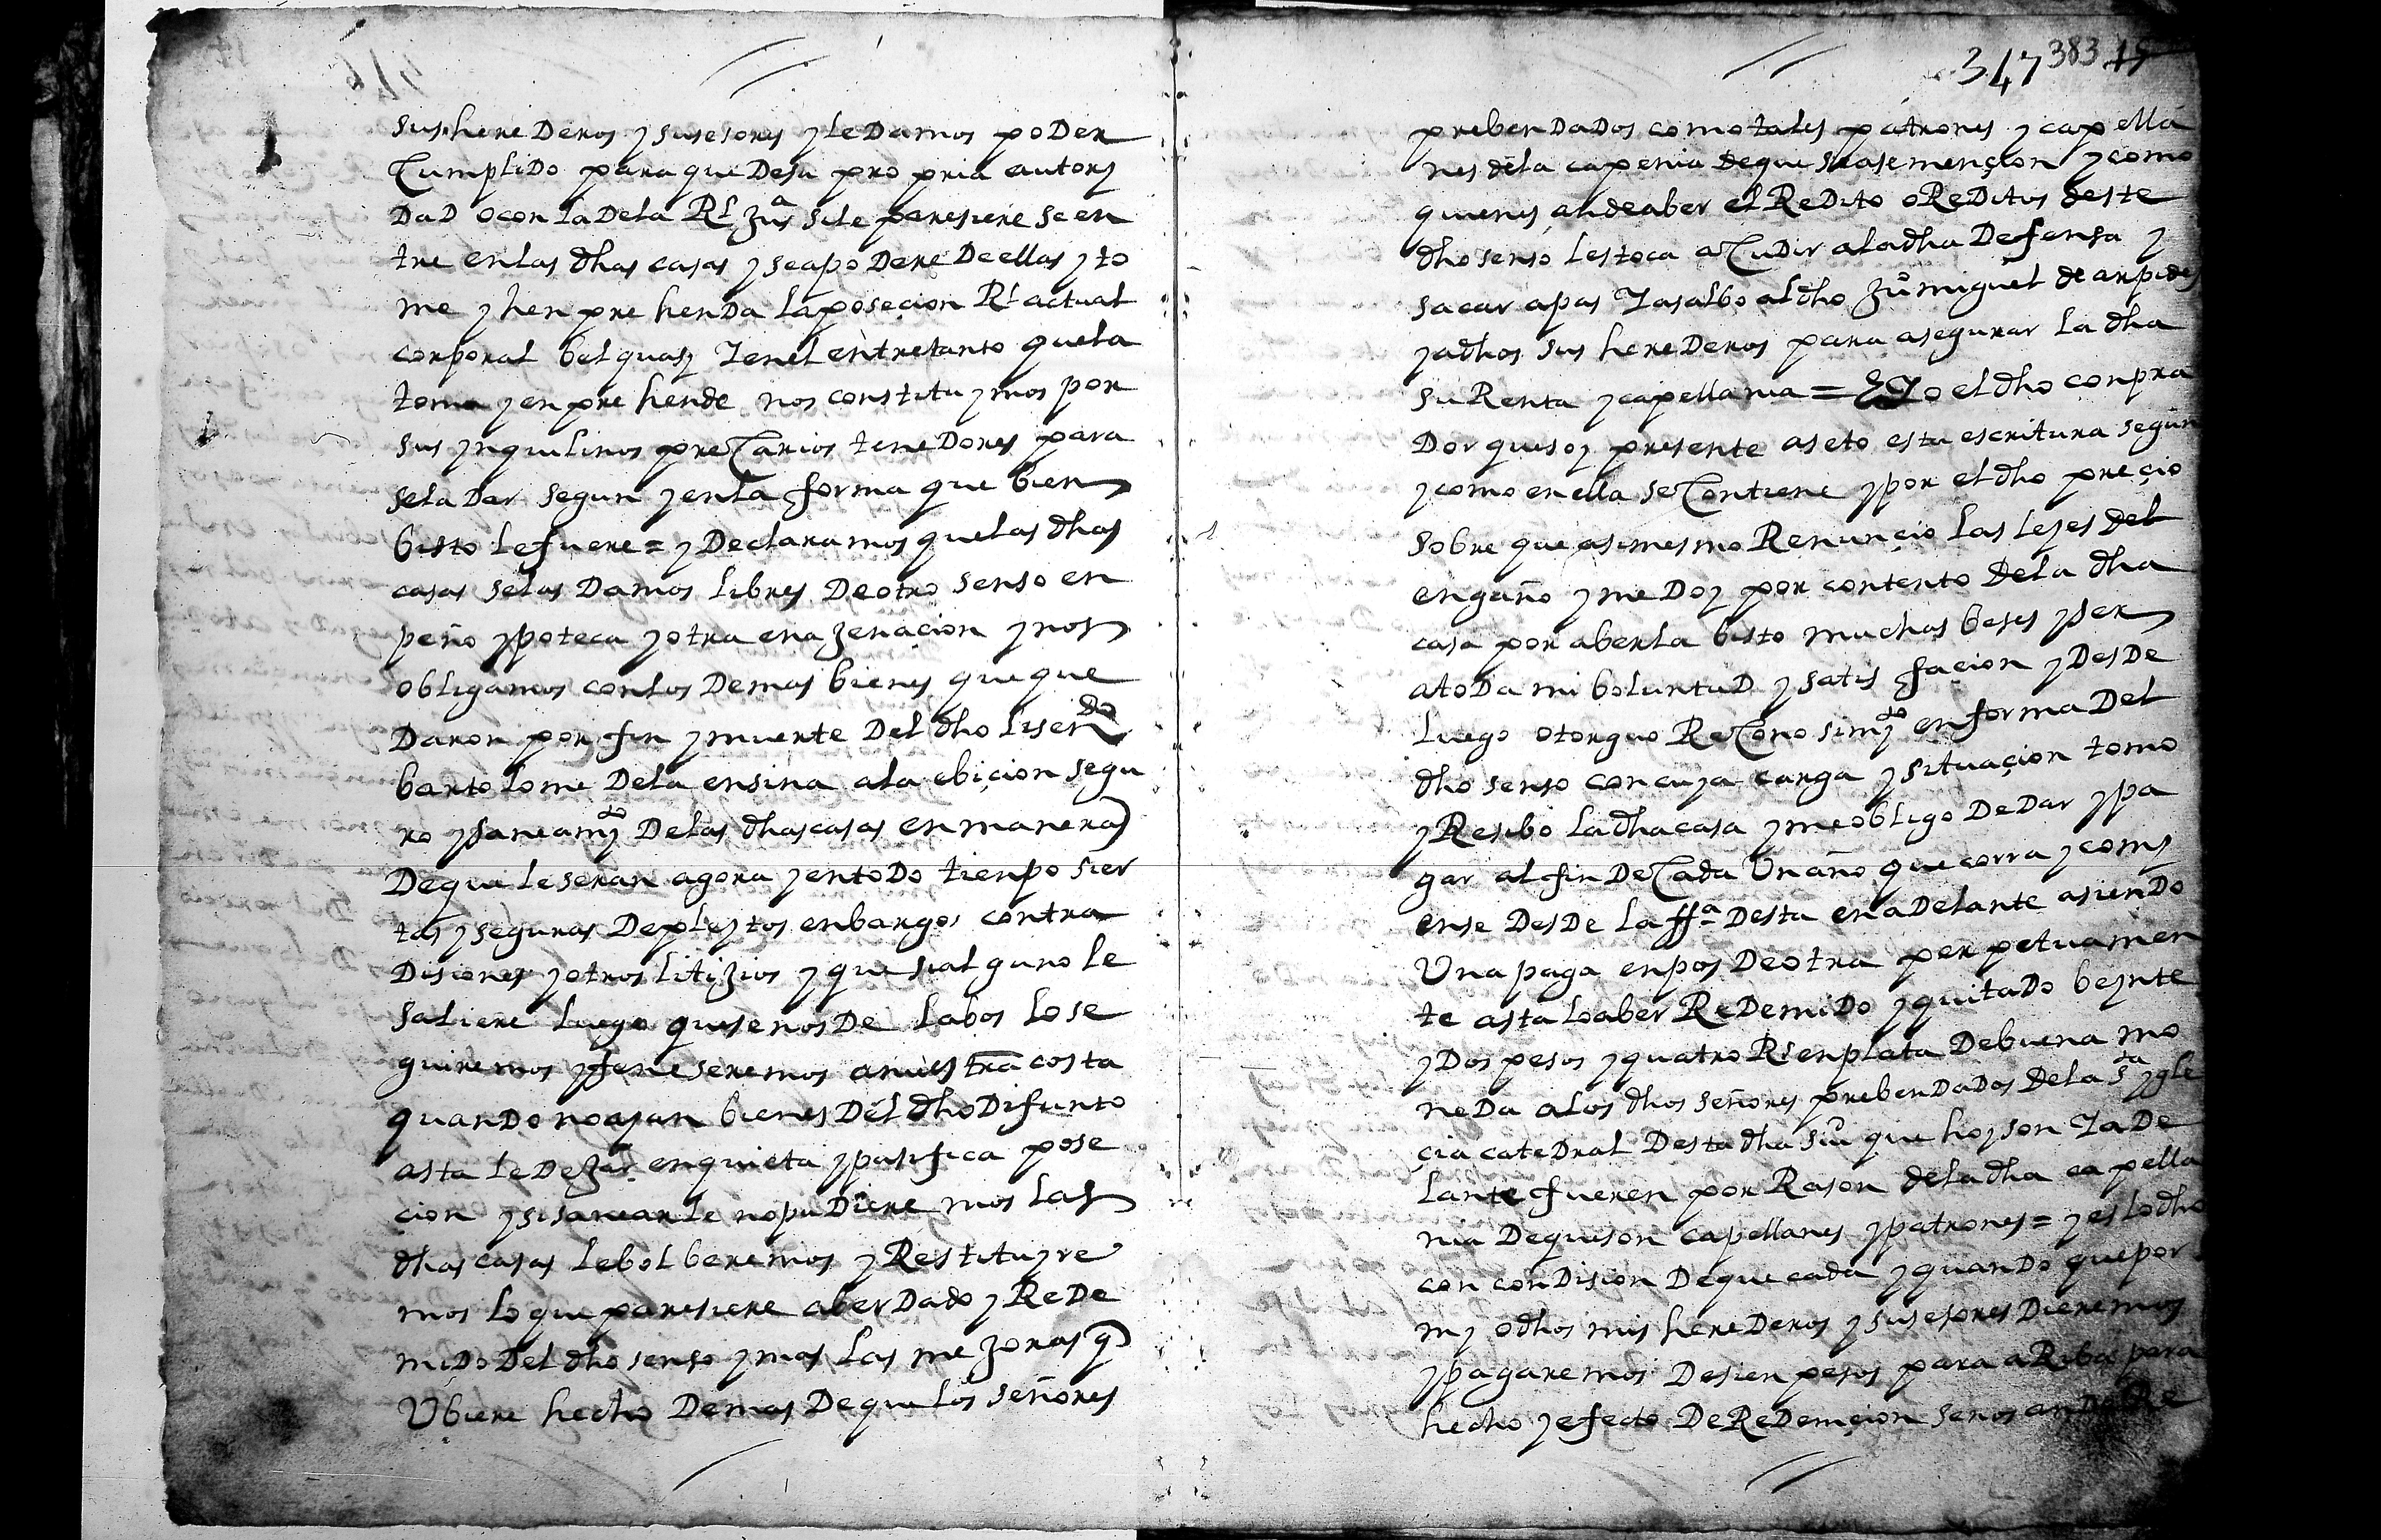 sus herederos y susesores y le damos poder
Cumplido para que de su propria autory
dad o con la de la Rl Jusa si le paresiere se en
tre en las dhas casas y se apodere de ellas y to
me y henprehenda la poseçion Rl actual
corporal bel quasy Y en el entretanto que la
toma y enprehende nos constituymos por
sus ynquilinos preCarios tenedores para
sela dar segun y en la forma que bien
bisto le fuere = y Declaramos que las dhas
casas se las Damos libres De otro senso en
peño ypoteca y otra enajenaçion y nos
obligamos con los Demas bienes que que
Daron por fin y muerte Del dho lisendo
bartolome De la ensina a la ebiçion segu
ro y saneamyo De las dhas casas en manera
De que le seran agora y en todo tienpo sier
tas y seguras De pleytos enbargos contra
Disiones y otros litijios y que si alguno le
saliere luego que se nos De labos lo se
guiremos y feneseremos a nuestra costa
quando no ayan bienes Del dho Difunto
asta le Dejar en quieta y pasifica pose
çion y si sanearle no pudieremos las
dhas casas le bolberemos y Restituyre
mos lo que paresiere aber Dado y Rede
mido Del dho senso y mas las mejoras q
Ubiere hecho Demas De que los señores
347 383 15
prebendados como tales patrones y capella
nes de la capenia de que se ase mençion y como
quienes an de aber el Redito o Reditos deste
dho senso les toca aCudir a la dha Defensa y
sacar a pas Y a salbo al dho Juo miguel de arpide
y a dhos sus herederos para asegurar la dha
su Renta y capellania = E Yo el dho conpra
Dor que soy presente aseto esta escritura segun
y como en ella se Contiene y por el dho preçio
sobre que asimesmo Renunçio las leyes del
engaño y me Doy por contento De la dha
casa por aberla bisto muchas beses y ser
a toda mi boluntad y satisfaçion y Desde
luego otorguo ReConosimyo en forma Del
dho senso con cuya carga y situaçion tomo
y Resibo la dha casa y me obligo De Dar y pa
gar al fin De Cada Un año que corra y comy
ense Desde la ffa Desta en adelante asiendo
Una paga en pos De otra perpetuamen
te asta lo aber Redemido y quitado beynte
y Dos pesos y quatro Rs en plata De buena mo
neda a los dhos señores prebendados De la sta ygle
çia catedral Desta dha siu que hoy son Y a De
lante fueren por Rason de la dha capella
nia De que son capellanes y patrones = y es lo dho
con condision De que cada y quando que por
my o dhos mis herederos y susesores Dieremos
y pagaremos De sien pesos para aRiba para
hecho y efecto De Redemçion se nos an De Re